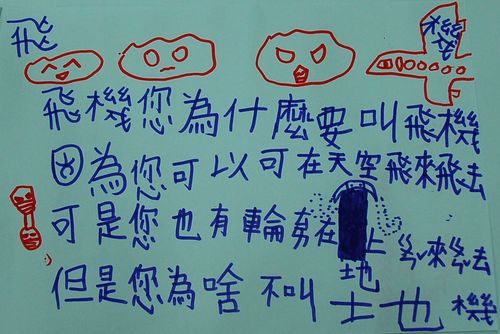 飛 機
飛機您為什麼要叫飛機
因為您可以可在天空飛來飛去
可是您也有輪在地上來去
但是您為啥不叫土也機